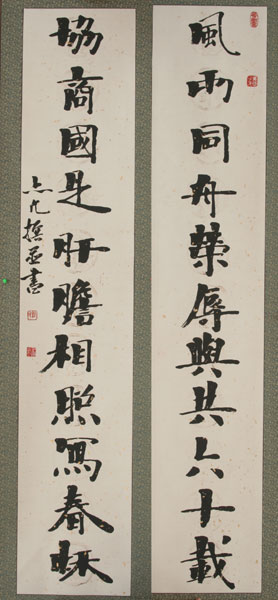 風雨同舟榮辱與共六十載
協商國是肝膽相照寫春秋
志凡撰並書